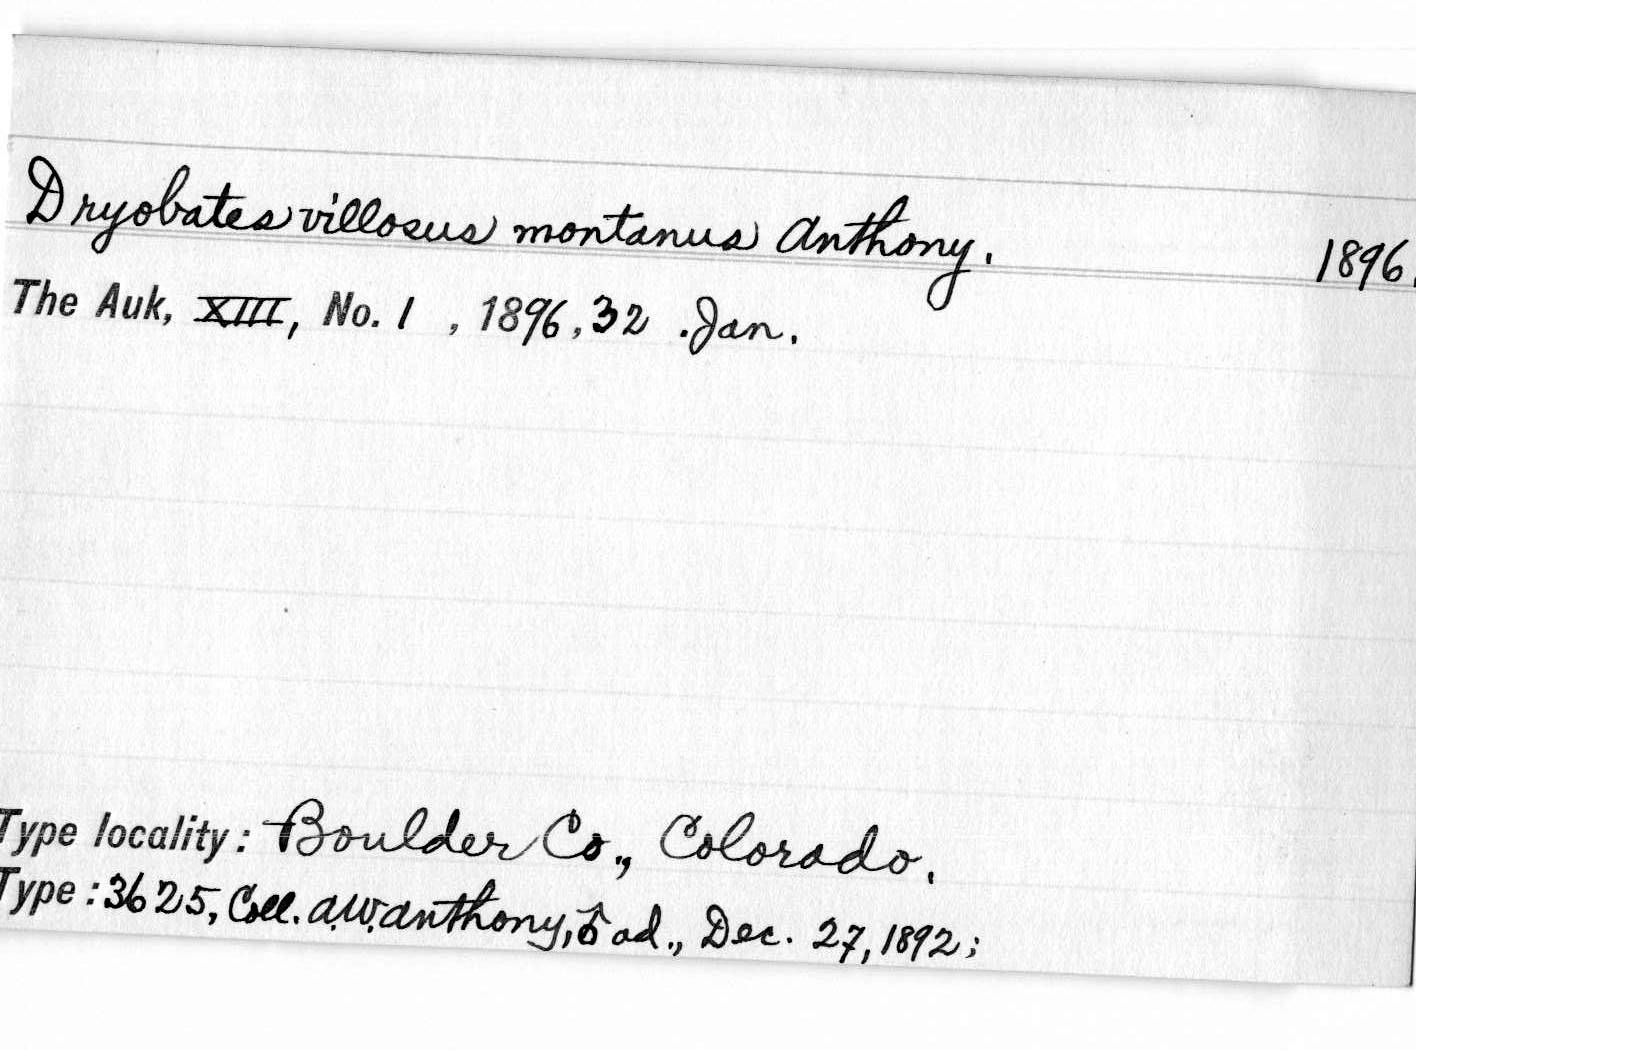 Dryobates villosus montanus Anthony. 1896.
The Auk, XIII, No. 1 , 1896, 32 . Jan.
Type locality: Boulder Co., Colorado.
Type: 3625, Coll. A.W. Anthony, ♂ ad., Dec. 27, 1892;